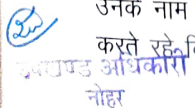 उनके नाम
करते रहे
उपखण्ड अधिकारी
नोहर